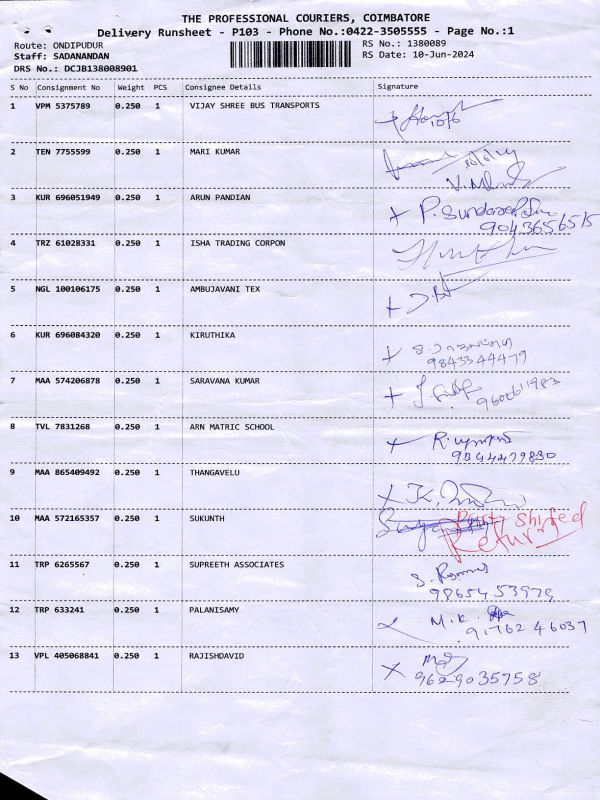 THE PROFESSIONAL COURIERS, COIMBATORE
Delivery Runsheet - P103 - Phone No.:0422-3505555 - Page No.:1
Route: ONDIPUDUR RS No.: 1380089
Staff: SADANANDAN RS Date: 10-Jun-2024
DRS No.: DCJB138008901
S No Consignment No Weight PCS Consignee Details Signature
1 VPM 5375789 0.250 1 VIJAY SHREE BUS TRANSPORTS
10/6
2 TEN 7755599 0.250 1 MARI KUMAR
3 KUR 696051949 0.250 1 ARUN PANDIAN
9043656515
4 TRZ 61028331 0.250 1 ISHA TRADING CORPON
5 NGL 100106175 0.250 1 AMBUJAVANI TEX
6 KUR 696084320 0.250 1 KIRUTHIKA
9843344479
7 MAA 574206878 0.250 1 SARAVANA KUMAR
8 TVL 7831268 0.250 1 ARN MATRIC SCHOOL
9 MAA 865409492 0.250 1 THANGAVELU
10 MAA 572165357 0.250 1 SUKUNTH Party Shifted
Return
11 TRP 6265567 0.250 1 SUPREETH ASSOCIATES
9865453979
12 TRP 633241 0.250 1 PALANISAMY M.K.
9176246037
13 VPL 405068841 0.250 1 RAJISHDAVID
9629035758